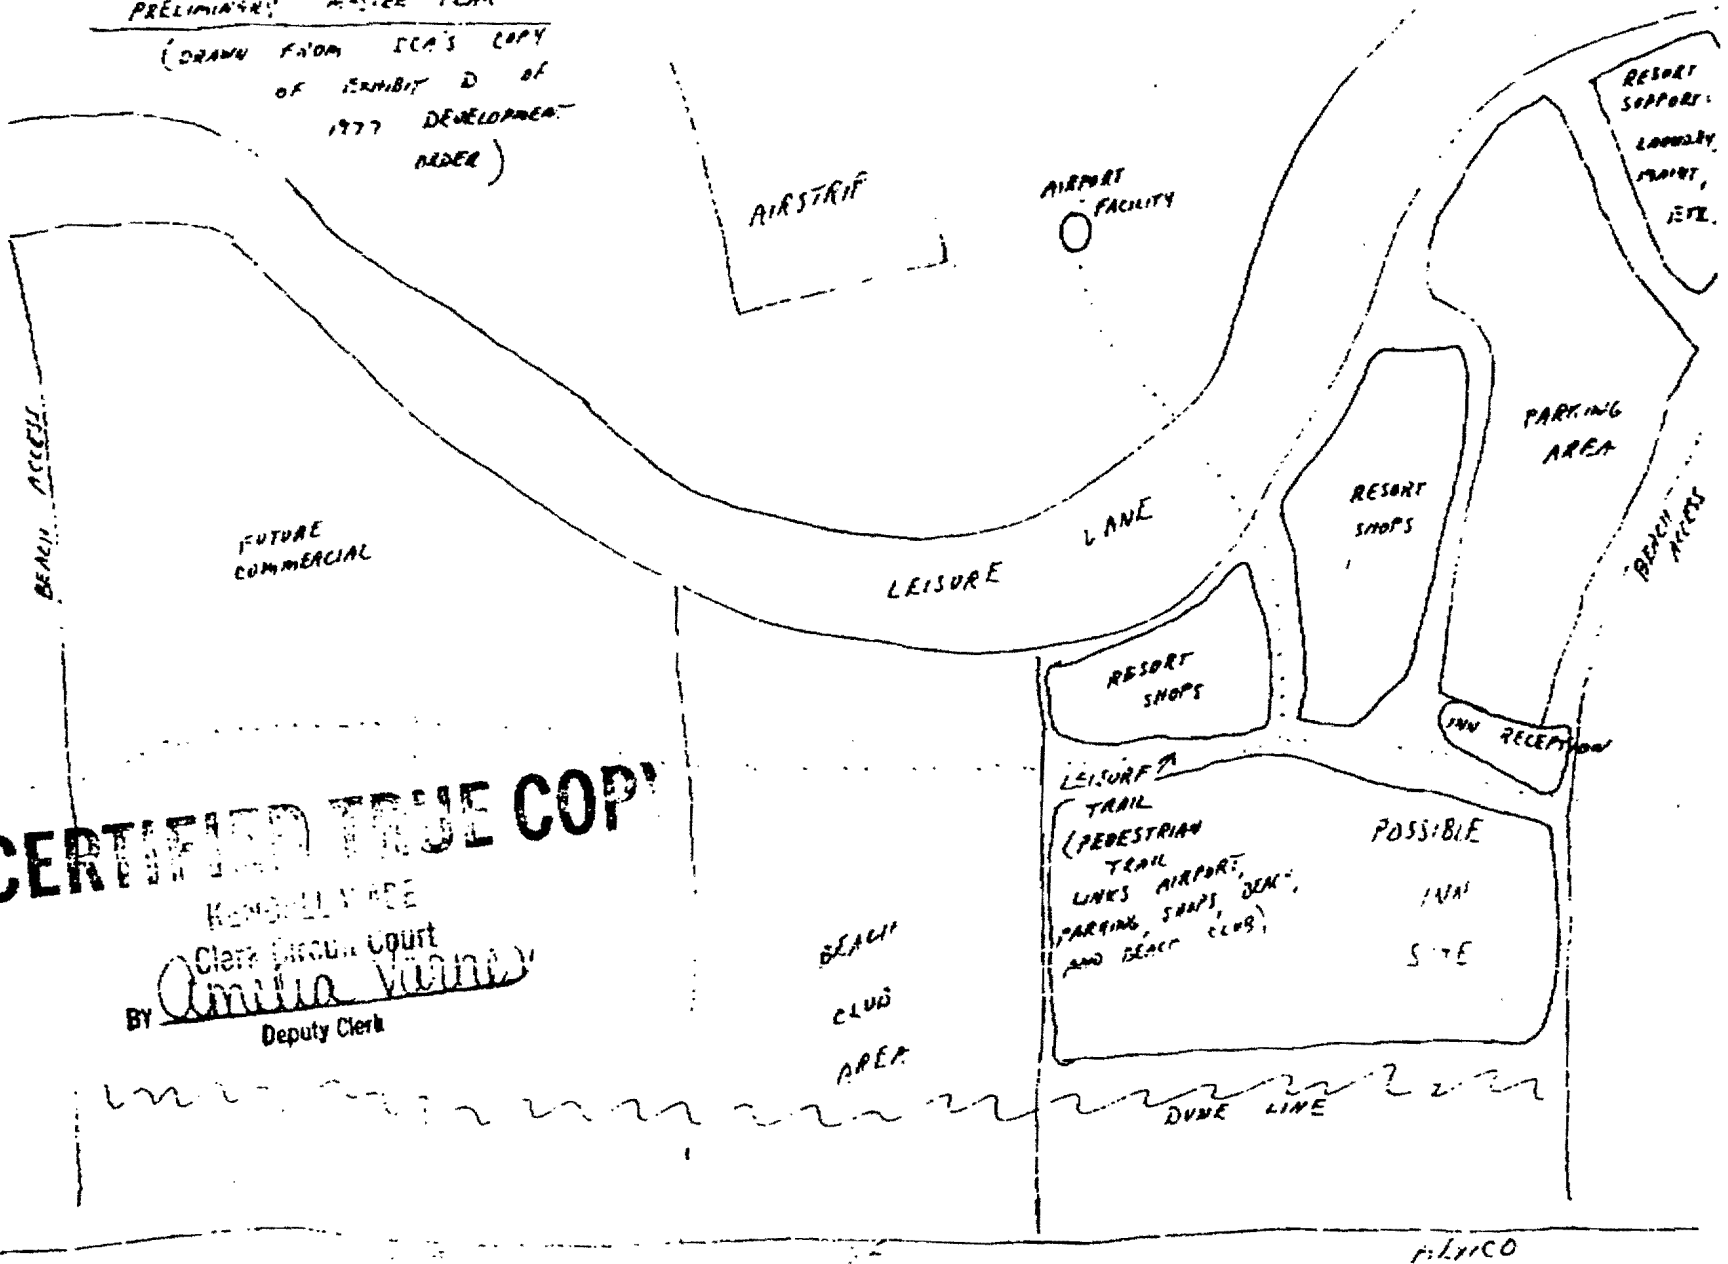 PRELIMINARY MASTER PLAN
(DRAWN FROM COPY
OF EXHIBIT D OF
1977 DEVELOPMENT
ORDER)
AIRSTRIP
AIRPORT
FACILITY
RESORT
SUPPORT:
LAUNDRY,
MAINT,
ETC.
BEACH ACCESS
FUTURE
COMMERCIAL
LEISURE LANE
RESORT
SHOPS
PARKING
AREA
BEACH
ACCESS
RESORT
SHOPS
INN RECEPTION
LEISURE
TRAIL
(PEDESTRIAN
TRAIL
LINKS AIRPORT,
PARKING, SHOPS, BEACH,
AND BEACH CLUB)
POSSIBLE
INN
SITE
CERTIFIED TRUE COPY
Clerk Circuit Court
BY
Deputy Clerk
BEACH
CLUB
AREA
DUNE LINE
MEXICO